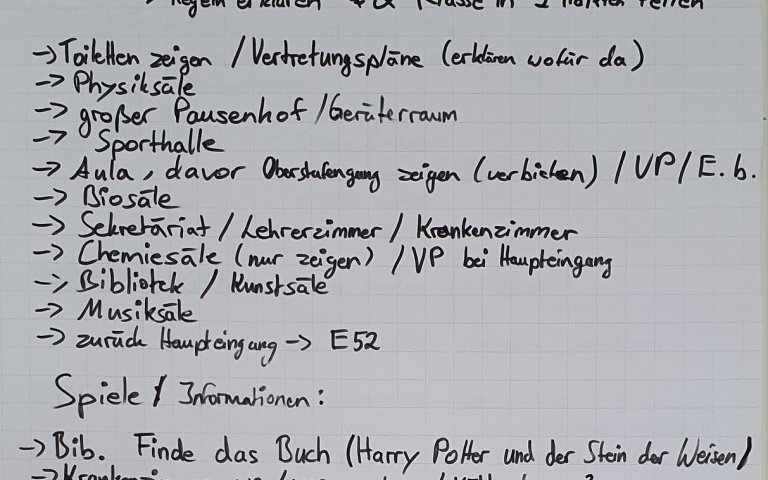 Regeln erklären Klasse in 2 Hälften teilen
-> Toiletten zeigen / Vertretungspläne (erklären wofür da)
-> Physiksäle
-> großer Pausenhof / Geräterraum
-> Sporthalle
-> Aula, davor Oberstufengang zeigen (verbieten) / VP / E. b.
-> Biosäle
-> Sekretäriat / Lehrerzimmer / Krankenzimmer
-> Chemiesäle (nur zeigen) / VP bei Haupteingang
-> Bibliotek / Kunstsäle
-> Musiksäle
-> zurück Haupteingang -> E52
Spiele / Informationen:
-> Bib. Finde das Buch (Harry Potter und der Stein der Weisen)